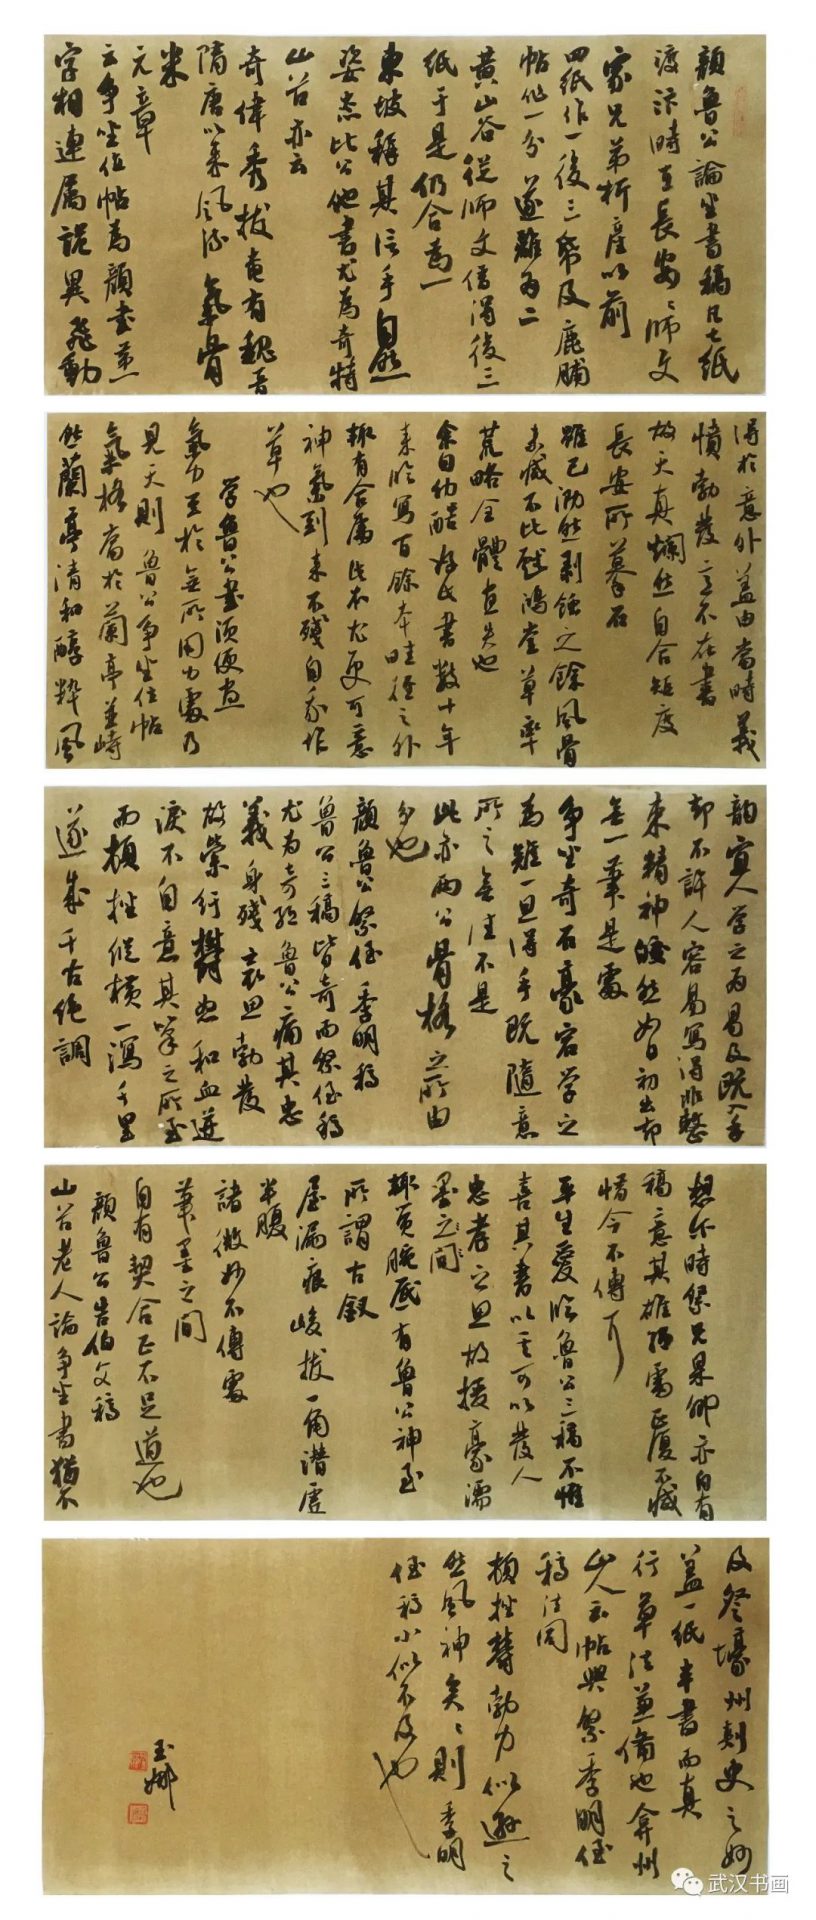 顏魯公論坐書稿凡七紙
渡汴時在長安安師文
家兄弟析產以前
四紙作一後三紙及鹿脯
帖作一分遂離為二
黃山谷從師文借得後三
紙于是仍合為一
東坡稱其信手自然
姿态比公他書尤為奇特
山谷亦云
奇偉秀拔奄有魏晉
隋唐以來風流氣骨
米
元章
云爭坐位帖為顏書第
字相連屬詭異飛動
得於意外蓋由當時義
憤勃發意不在書
故天真爛然自合矩度
長安所摹石
雖已泐然剥蝕之餘風骨
未滅不比戲鴻堂草率
荒略全體直失也
余自幼酷好此書數十年
來臨寫百餘本畦徑之外
輒有合處此本尤更可意
神氣到來不殘自我作
草也
学魯公書須使盡
氣力至於無所用力處乃
見天則魯公爭坐位帖
氣格當於蘭亭並峙
然蘭亭清和醇粹風
韵宜人学之為易及既入手
却不許人容易寫得非整
束精神皎然如日初出却
無一筆是處
爭坐奇石豪宕学之
為難一旦得手既隨意
所之無往不是
此亦两公骨格之所由
分也
顏魯公祭侄季明稿
魯公三稿皆奇而祭侄稿
尤为奇絕魯公痛其忠
義身殘哀思勃發
故縈紆鬱怒和血迸
淚不自意其筆之所至
而頓挫縱橫一瀉千里
遂成千古絕調
想尔時祭兄杲卿亦自有
稿意其雄强處正復不減
惜今不傳耳
平生愛临魯公三稿不惟
喜其書以其可以發人
忠孝之思故援豪濡
墨之間
輒覓腕底有魯公神至
所謂古釵
屋漏痕峻拔一角潜虛
半腹
諸微妙不傳處
筆墨之间
自有契合正不足道也
顏魯公告伯父稿
山谷老人論爭坐書猶不
及祭濠州刺史之妙
蓋一紙半書而真
行草法兼備也弇州
山人云帖與祭季明侄
稿法同
頓挫鬱勃力似遜之
然風神奕奕則季明
侄稿小似不及也
玉娜
武汉书画